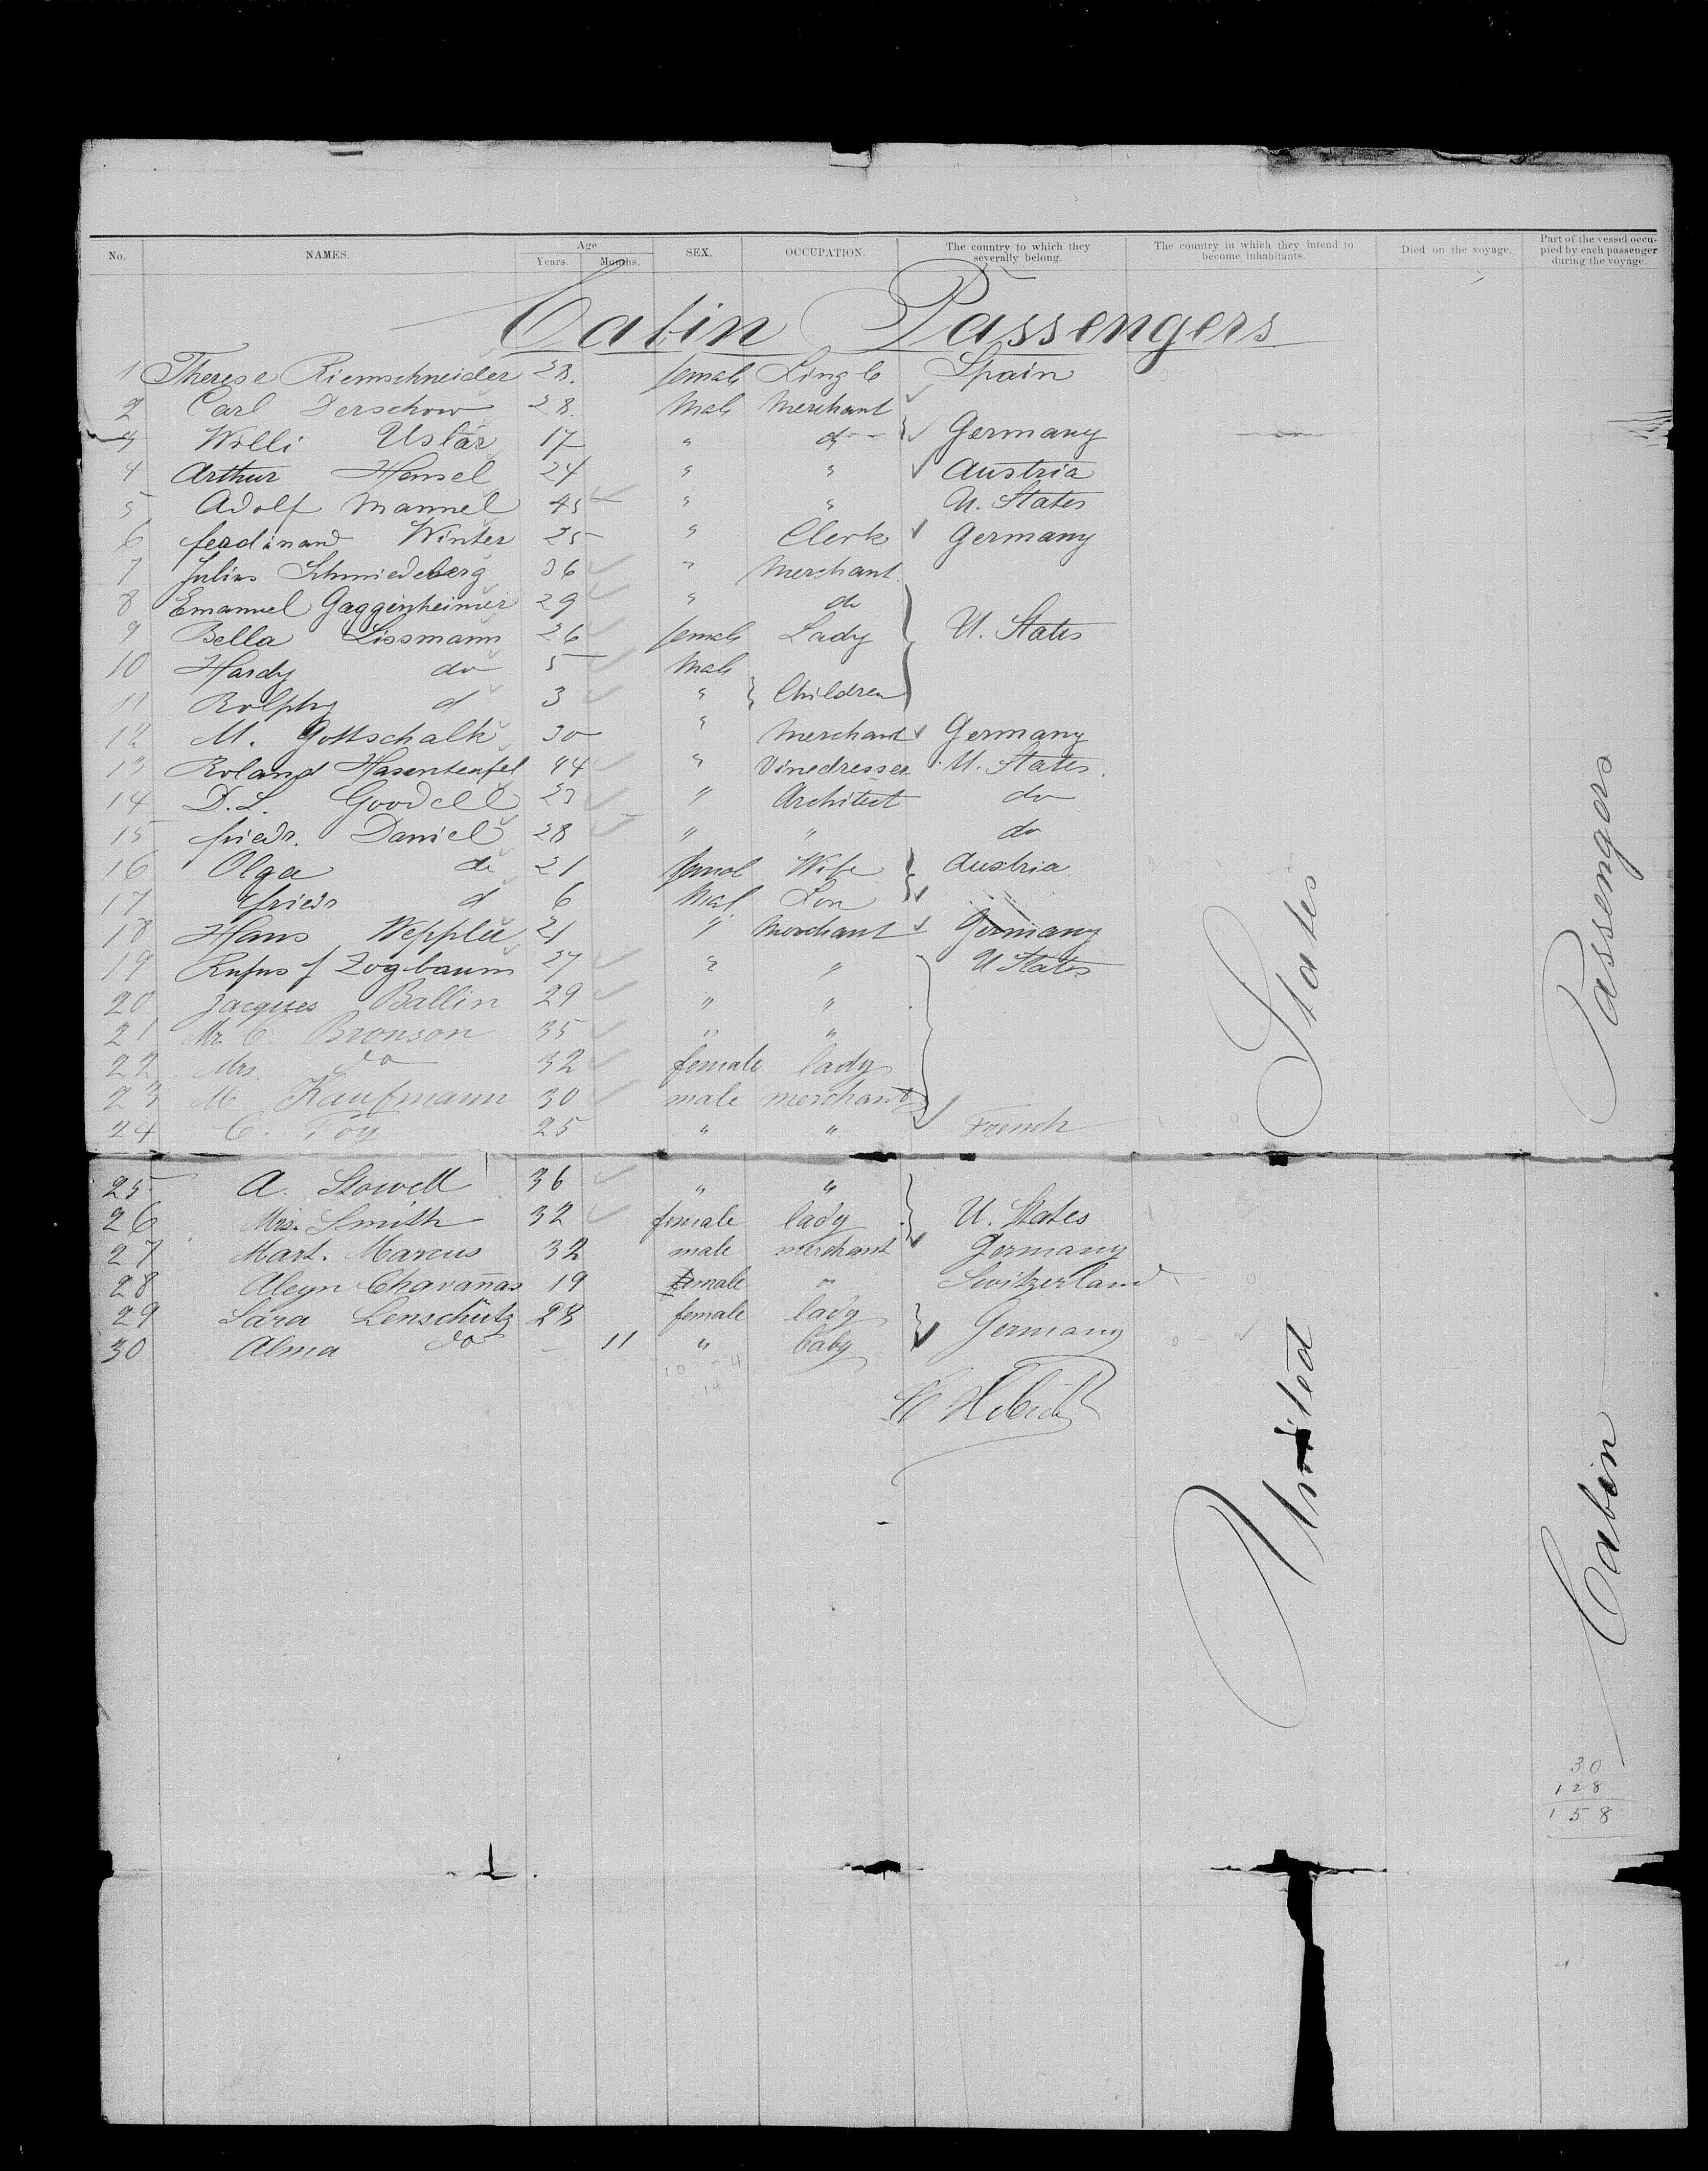 No. NAMES. Age Years. Months. SEX. OCCUPATION. The country to which they severally belong. The country in which they intend to become inhabitants. Died on the voyage. Part of the vessel occupied by each passenger during the voyage.
Cabin Passengers
1 Therese Riemschneider 28. female Single Spain
2 Carl Derschow 28. Male Merchant
3 Willi Uslar 17 " do Germany
4 Arthur Hensel 24 " " Austria
5 Adolf Mannel 45 " " U. States
6 ferdinand Winter 25 " Clerk Germany
7 Julius Schmiedeberg 36 " Merchant
8 Emanuel Gaggenheimer 29 " do
9 Bella Lissmann 26 female Lady U. States
10 Hardy do 5 Male
11 Rolphy d 3 " Children
12 M. Gottschalk 30 " Merchant Germany
13 Roland Hasenteufel 44 " Vinedresser U. States.
14 D. L. Goodell 23 " Architect do
15 friedr. Daniel 28 " " do
16 Olga do 21 femal Wife Austria
17 friedr d 6 Mal Son
18 Hans Wepplee 21 " Merchant Germany
19 Rufus f Zogbaum 27 " " U States
20 Jacques Ballin 29 " "
21 Mr. C. Bronson 35 " "
22 Mrs. do 32 female lady
23 M Kaufmann 30 male merchant
24 C. Foy 25 " " French
25 A. Stowell 36 " "
26 Mrs. Smith 32 female lady U. States
27 Mart. Marcus 32 male merchant Germany
28 Aleyn Chavañas 19 male " Switzerland
29 Sara Lenschütz 28 female lady
30 Alma do - 11 " baby Germany
10 - 4
14
United States
Cabin Passengers
30
128
158